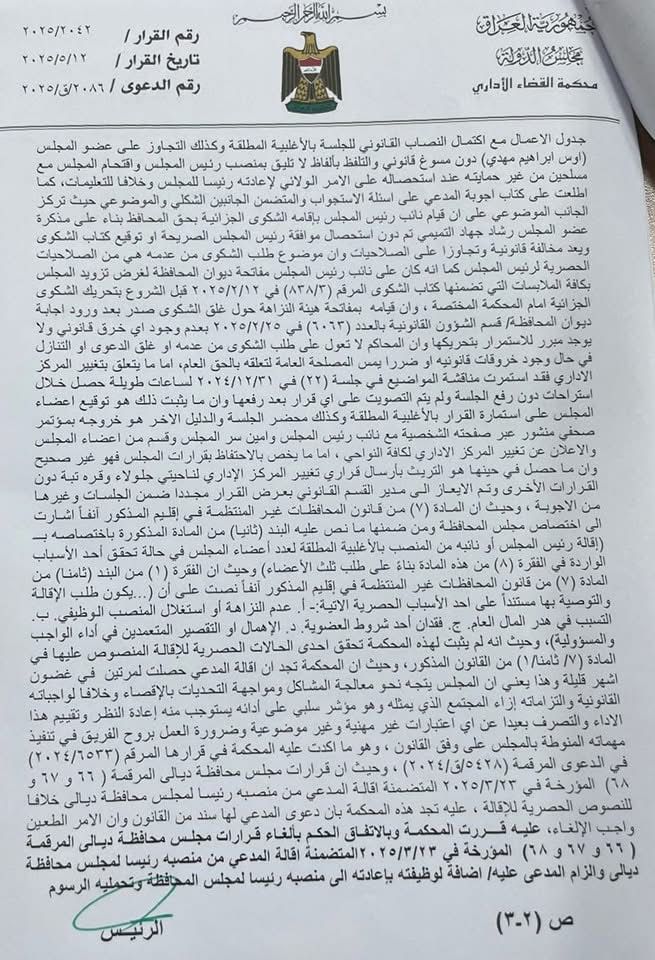 بسم الله الرحمن الرحيم
جمهورية العراق
مجلس الدولة
محكمة القضاء الأداري
رقم القرار / ٢٠٢٥/٢٠٤٢
تاريخ القرار / ٢٠٢٥/٥/١٢
رقم الدعوى / ٢٠٨٦/ق/٢٠٢٥
جدول الاعمال مع اكتمال النصاب القانوني للجلسة بالأغلبية المطلقة وكذلك التجاوز على عضو المجلس
(اوس ابراهيم مهدي) دون مسوغ قانوني والتلفظ بألفاظ لا تليق بمنصب رئيس المجلس واقتحام المجلس مع
مسلحين من غير حمايته عند استحصاله على الامر الولائي لإعادته رئيسا للمجلس وخلافا للتعليمات، كما
اطلعت على كتاب اجوبة المدعي على اسئلة الاستجواب والمتضمن الجانبين الشكلي والموضوعي حيث تركز
الجانب الموضوعي على ان قيام نائب رئيس المجلس بإقامه الشكوى الجزائية بحق المحافظ بناء على مذكرة
عضو المجلس رشاد جهاد التميمي تم دون استحصال موافقة رئيس المجلس الصريحة او توقيع كتاب الشكوى
ويعد مخالفة قانونية وتجاوزا على الصلاحيات وان موضوع طلب الشكوى من عدمه هي من الصلاحيات
الحصرية لرئيس المجلس كما انه كان على نائب رئيس المجلس مفاتحة ديوان المحافظة لغرض تزويد المجلس
بكافة الملابسات التي تضمنها كتاب الشكوى المرقم (٨٣٨/٣) في ٢٠٢٥/٢/١٢ قبل الشروع بتحريك الشكوى
الجزائية امام المحكمة المختصة ، وان قيامه بمفاتحة هيئة النزاهة حول غلق الشكوى صدر بعد ورود اجابة
ديوان المحافظة/ قسم الشؤون القانونية بالعدد (٦٠٦٣) في ٢٠٢٥/٢/٢٥ بعدم وجود اي خرق قانوني ولا
يوجد مبرر للاستمرار بتحريكها وان المحاكم لا تعول على طلب الشكوى من عدمه او غلق الدعوى او التنازل
في حال وجود خروقات قانونيه او ضررا يمس المصلحة العامة لتعلقه بالحق العام، اما ما يتعلق بتغيير المركز
الاداري فقد استمرت مناقشة المواضيع في جلسة (٢٢) في ٢٠٢٤/١٢/٣١ لساعات طويلة حصل خلال
استراحات دون رفع الجلسة ولم يتم التصويت على اي قرار بعد رفعها وان ما يثبت ذلك هو توقيع اعضاء
المجلس على استمارة القرار بالأغلبية المطلقة وكذلك محضر الجلسة والدليل الاخر هو خروجه بمؤتمر
صحفي منشور عبر صفحته الشخصية مع نائب رئيس المجلس وامين سر المجلس وقسم من اعضاء المجلس
والاعلان عن تغيير المركز الاداري لكافة النواحي ، اما ما يخص بالاحتفاظ بقرارات المجلس فهو غير صحيح
وان ما حصل في حينها هو التريث بأرسال قراري تغيير المركز الإداري لناحيتي جلولاء وقره تبة دون
القرارات الأخرى وتم الايعاز الى مدير القسم القانوني بعرض القرار مجددا ضمن الجلسات وغيرها
من الاجوبة ، وحيث ان المادة (٧) من قانون المحافظات غير المنتظمة في إقليم المذكور آنفاً اشارت
الى اختصاص مجلس المحافظة ومن ضمنها ما نص عليه البند (ثانيا) من المادة المذكورة باختصاصه بـ
(إقالة رئيس المجلس أو نائبه من المنصب بالأغلبية المطلقة لعدد أعضاء المجلس في حالة تحقق أحد الأسباب
الواردة في الفقرة (٨) من هذه المادة بناءً على طلب ثلث الأعضاء) وحيث ان الفقرة (١) من البند (ثامنا) من
المادة (٧) من قانون المحافظات غير المنتظمة في إقليم المذكور آنفاً نصت على أن (...يكون طلب الإقالة
والتوصية بها مستنداً على احد الأسباب الحصرية الاتية:- أ. عدم النزاهة أو استغلال المنصب الوظيفي. ب.
التسبب في هدر المال العام. ج. فقدان أحد شروط العضوية. د. الإهمال او التقصير المتعمدين في أداء الواجب
والمسؤولية)، وحيث انه لم يثبت لهذه المحكمة تحقق احدى الحالات الحصرية للإقالة المنصوص عليها في
المادة (٧/ ثامنا/١) من القانون المذكور، وحيث ان المحكمة تجد ان اقالة المدعي حصلت لمرتين في غضون
اشهر قليلة وهذا يعني ان المجلس يتجه نحو معالجة المشاكل ومواجهة التحديات بالإقصاء وخلافا لواجباته
القانونية والتزاماته إزاء المجتمع الذي يمثله وهو مؤشر سلبي على أدائه يستوجب منه إعادة النظر وتقييم هذا
الاداء والتصرف بعيدا عن اي اعتبارات غير مهنية وغير موضوعية وضرورة العمل بروح الفريق في تنفيذ
مهماته المنوطة بالمجلس على وفق القانون ، وهو ما اكدت عليه المحكمة في قرارها المرقم (٢٠٢٤/٦٥٣٣)
في الدعوى المرقمة (٥٤٢٨/ق/٢٠٢٤) ، وحيث ان قرارات مجلس محافظة ديالى المرقمة ( ٦٦ و ٦٧ و
٦٨) المؤرخة في ٢٠٢٥/٣/٢٣ المتضمنة اقالة المدعي من منصبه رئيسا لمجلس محافظة ديالى خلافا
للنصوص الحصرية للاقالة ، عليه تجد هذه المحكمة بان دعوى المدعي لها سند من القانون وان الامر الطعين
واجب الإلغاء، عليه قررت المحكمة وبالاتفاق الحكم بألغاء قرارات مجلس محافظة ديالى المرقمة
( ٦٦ و ٦٧ و ٦٨) المؤرخة في ٢٠٢٥/٣/٢٣المتضمنة اقالة المدعي من منصبه رئيسا لمجلس محافظة
ديالى والزام المدعى عليه/ اضافة لوظيفته بإعادته الى منصبه رئيسا لمجلس المحافظة وتحميله الرسوم
الرئيس
ص (٢-٣)